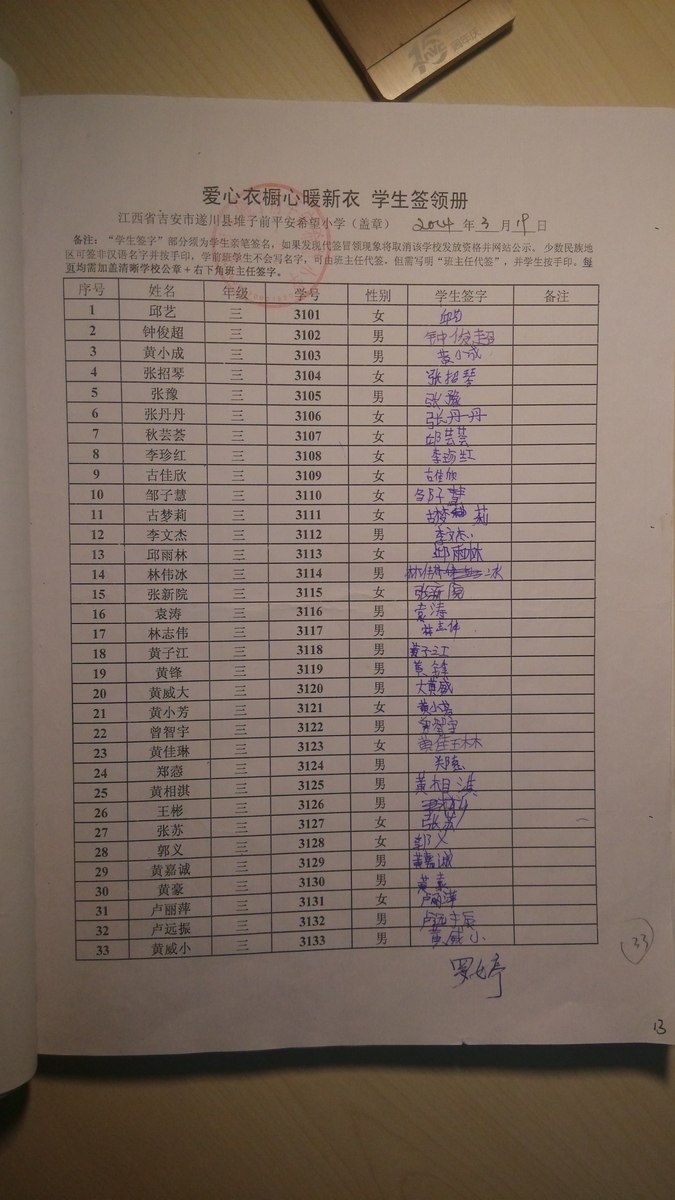 爱心衣橱心暖新衣 学生签领册
江西省吉安市遂川县堆子前平安希望小学（盖章） 2014 年 3 月 19 日
备注：“学生签字”部分须为学生亲笔签名，如果发现代签冒领现象将取消该学校发放资格并网站公示。少数民族地
区可签非汉语名字并按手印，学前班学生不会写名字，可由班主任代签，但需写明“班主任代签”，并学生按手印。每
页均需加盖清晰学校公章+右下角班主任签字。
序号 姓名 年级 学号 性别 学生签字 备注
1 邱艺 三 3101 女 邱艺
2 钟俊超 三 3102 男 钟俊超
3 黄小成 三 3103 男 黄小成
4 张招琴 三 3104 女 张招琴
5 张豫 三 3105 男 张豫
6 张丹丹 三 3106 女 张丹丹
7 秋芸荟 三 3107 女 邱芸荟
8 李珍红 三 3108 女 李珍红
9 古佳欣 三 3109 女 古佳欣
10 邹子慧 三 3110 女 邹子慧
11 古梦莉 三 3111 女 古梦莉
12 李文杰 三 3112 男 李文杰
13 邱雨林 三 3113 女 邱雨林
14 林伟冰 三 3114 男 林伟冰
15 张新院 三 3115 女 张新院
16 袁涛 三 3116 男 袁涛
17 林志伟 三 3117 男 林志伟
18 黄子江 三 3118 男 黄子江
19 黄锋 三 3119 男 黄锋
20 黄威大 三 3120 男 大黄威
21 黄小芳 三 3121 女 黄小芳
22 曾智宇 三 3122 男 曾智宇
23 黄佳琳 三 3123 女 黄佳琳
24 郑悫 三 3124 男 郑悫
25 黄相淇 三 3125 男 黄相淇
26 王彬 三 3126 男
27 张苏 三 3127 女 张苏
28 郭义 三 3128 女 郭义
29 黄嘉诚 三 3129 男 黄嘉诚
30 黄豪 三 3130 男 黄豪
31 卢丽萍 三 3131 女 卢丽萍
32 卢远振 三 3132 男 卢远振
33 黄威小 三 3133 男 黄威小
33
13